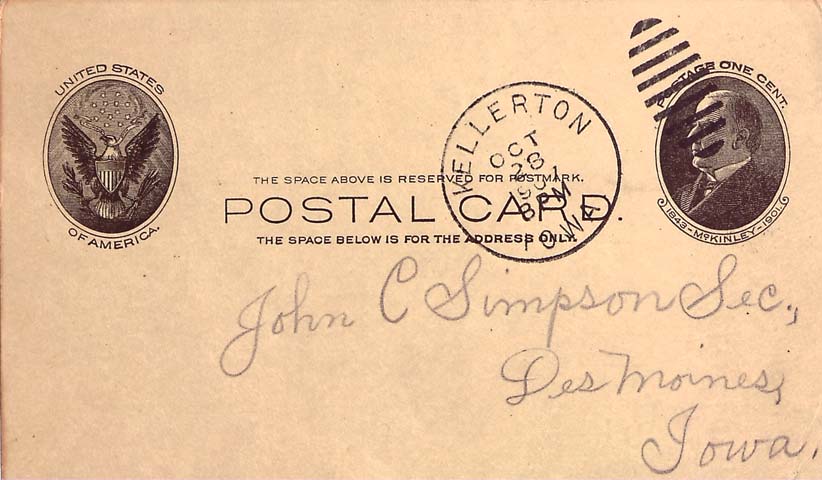 UNITED STATES
OF AMERICA.
POSTAGE ONE CENT.
1843-McKINLEY-1901.
KELLERTON
OCT
28
8 PM
IOWA
THE SPACE ABOVE IS RESERVED FOR POSTMARK.
POSTAL CARD.
THE SPACE BELOW IS FOR THE ADDRESS ONLY.
John C Simpson Sec.,
Des Moines,
Iowa.